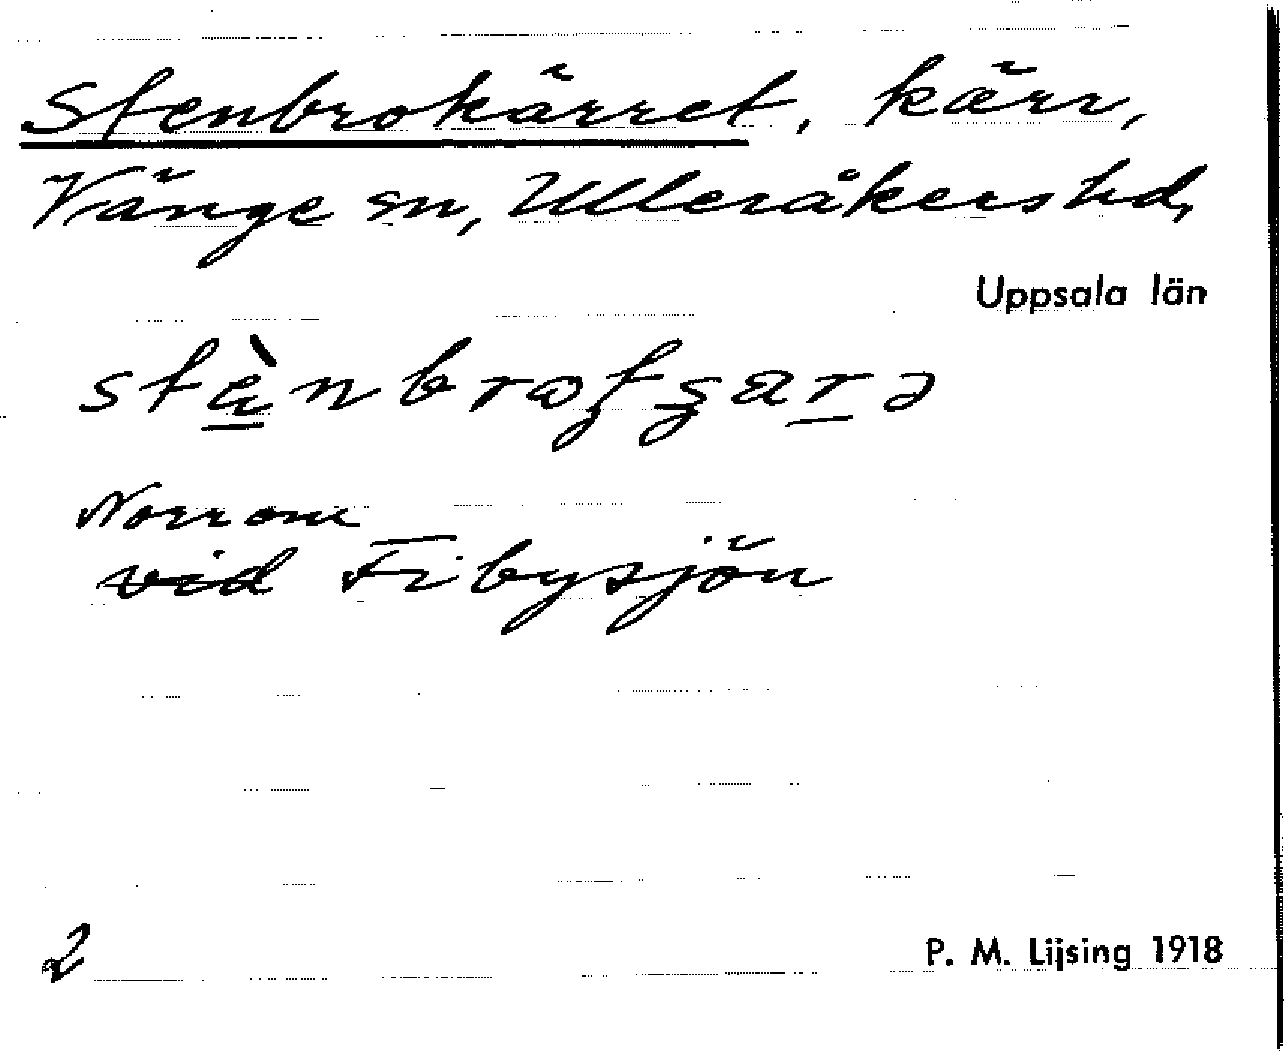 Stenbrokärret, kärr,
Vänge sn, Ulleråkers hd,
Uppsala län
Norrom
vid Fibysjön
2
P. M. Lijsing 1918